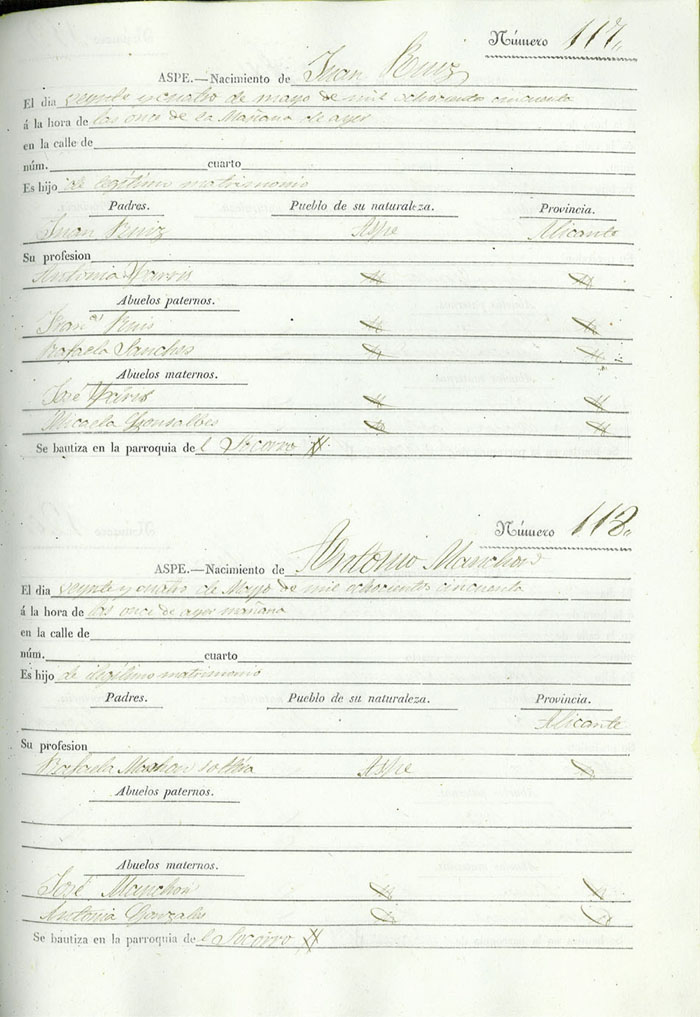 Número 117.
ASPE.—Nacimiento de Juan Ruiz
El dia veynte y cuatro de mayo de mil ochocientos cincuenta
á la hora de las once de la Mañana de ayer
en la calle de
núm. cuarto
Es hijo de legítimo matrimonio
Padres. Pueblo de su naturaleza. Provincia.
Juan Ruiz Aspe Alicante
Su profesion
Antonia
Abuelos paternos.
Ruis
Rafaela Sanches
Abuelos maternos.
José
Micaela Gonsalbes
Se bautiza en la parroquia de l Socorro
Número 118.
ASPE.—Nacimiento de Antonio Manchon
El dia veynte y cuatro de Mayo de mil ochocientos cincuenta
á la hora de las once de ayer mañana
en la calle de
núm. cuarto
Es hijo de matrimonio
Padres. Pueblo de su naturaleza. Provincia.
Alicante
Su profesion
Rafaela Aspe
Abuelos paternos.
Abuelos maternos.
José Manchon
Antonia Gonzales
Se bautiza en la parroquia de l Socorro